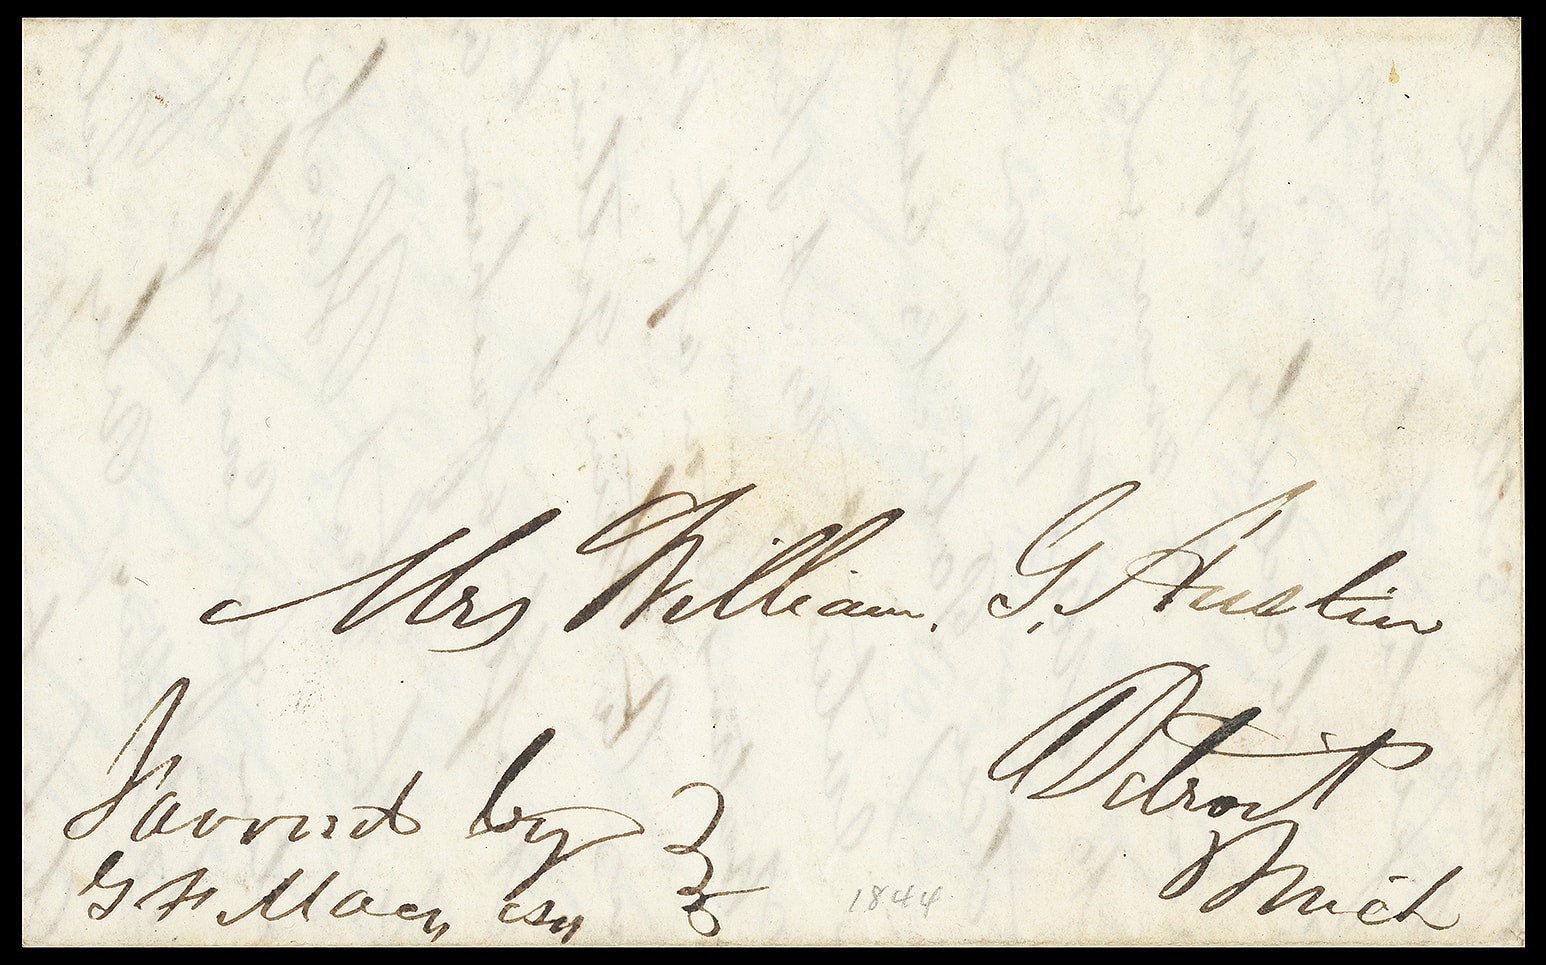 Mrs William. G. Austin
Detroit
Mich
Favored by
G F Macy, Esq
1844